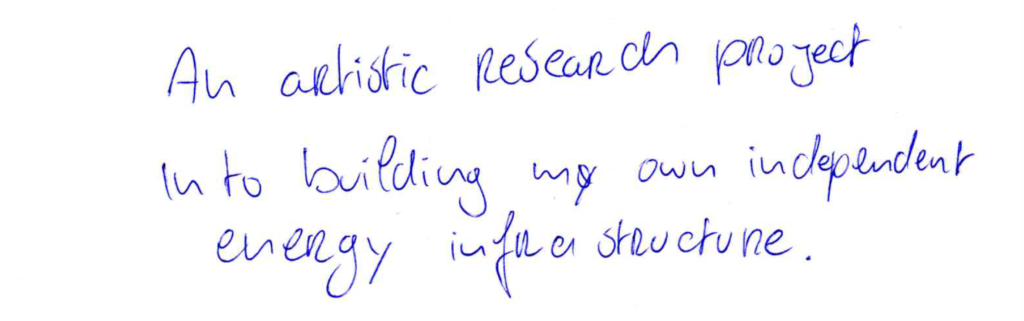 An artistic research project
into building my own independent
energy infrastructure.